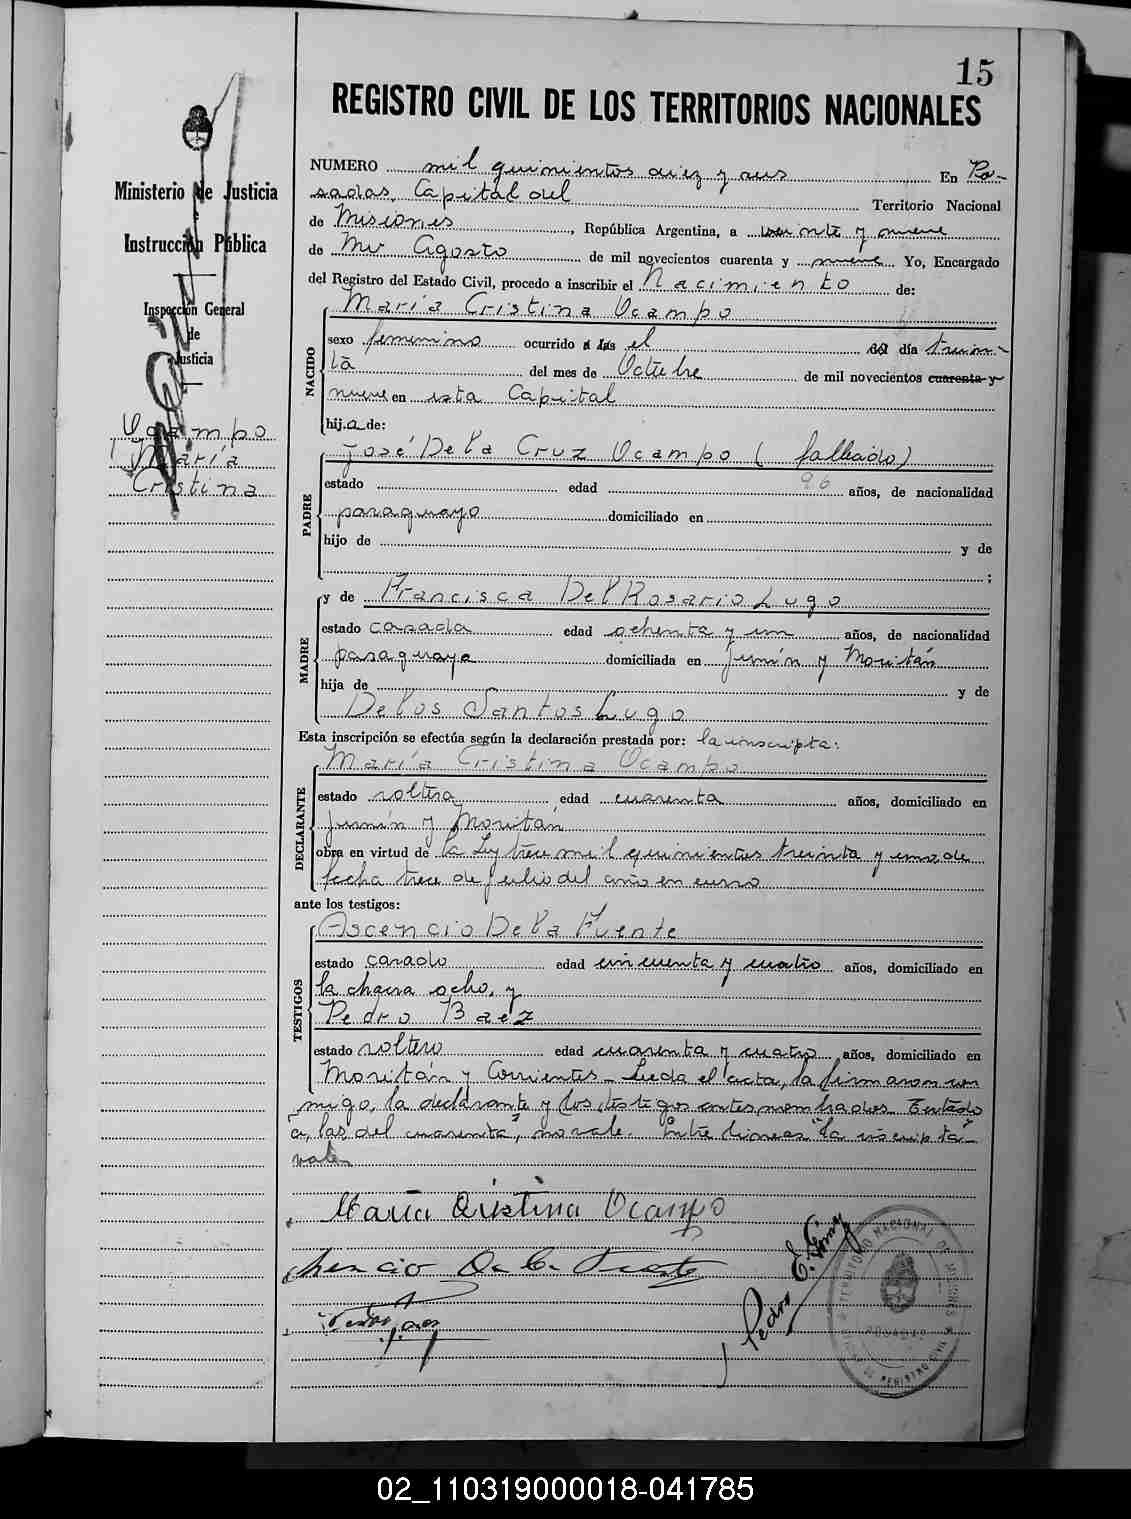 15
REGISTRO CIVIL DE LOS TERRITORIOS NACIONALES
Ministerio de Justicia
Instrucción Pública
Inspección General
de
Justicia
Ocampo
María
Cristina
NUMERO mil quinientos diez y seis En Po-
sadas, Capital del Territorio Nacional
de Misiones, República Argentina, a veinte y nueve
de Agosto de mil novecientos cuarenta y nueve Yo, Encargado
del Registro del Estado Civil, procedo a inscribir el Nacimiento de:
NACIDO
María Cristina Ocampo
sexo femenino ocurrido a las el del día trein-
ta del mes de Octubre de mil novecientos cuarenta y
nueve en esta Capital
hija de:
PADRE
José De la Cruz Ocampo (fallecido)
estado edad 96 años, de nacionalidad
paraguayo domiciliado en
hijo de y de
;
MADRE
y de Francisca Del Rosario Lugo
estado casada edad ochenta y un años, de nacionalidad
paraguaya domiciliada en Junín y Moritán
hija de y de
De los Santos Lugo
Esta inscripción se efectúa según la declaración prestada por: la inscripta:
DECLARANTE
María Cristina Ocampo
estado soltera edad cuarenta años, domiciliado en
Junín y Moritán
obra en virtud de la Ley trece mil quinientos treinta y uno de
fecha trece de julio del año en curso
ante los testigos:
TESTIGOS
Ascencio De la Fuente
estado casado edad cincuenta y cuatro años, domiciliado en
la chacra ocho, y
Pedro Baez
estado soltero edad cuarenta y cuatro años, domiciliado en
Moritán y Corrientes - Leeda el acta, la firmaron con
migo, la declarante y los testigos antes nombrados. Testado
"a, las, del cuarenta", no vale. Entre lineas "la inscripta"
vale
María Cristina Ocampo
Ascencio De la Fuente
Pedro Baez
Pedro E. Gomez
TERRITORIO NACIONAL DE MISIONES
POSADAS
REGISTRO CIVIL
02_110319000018-041785